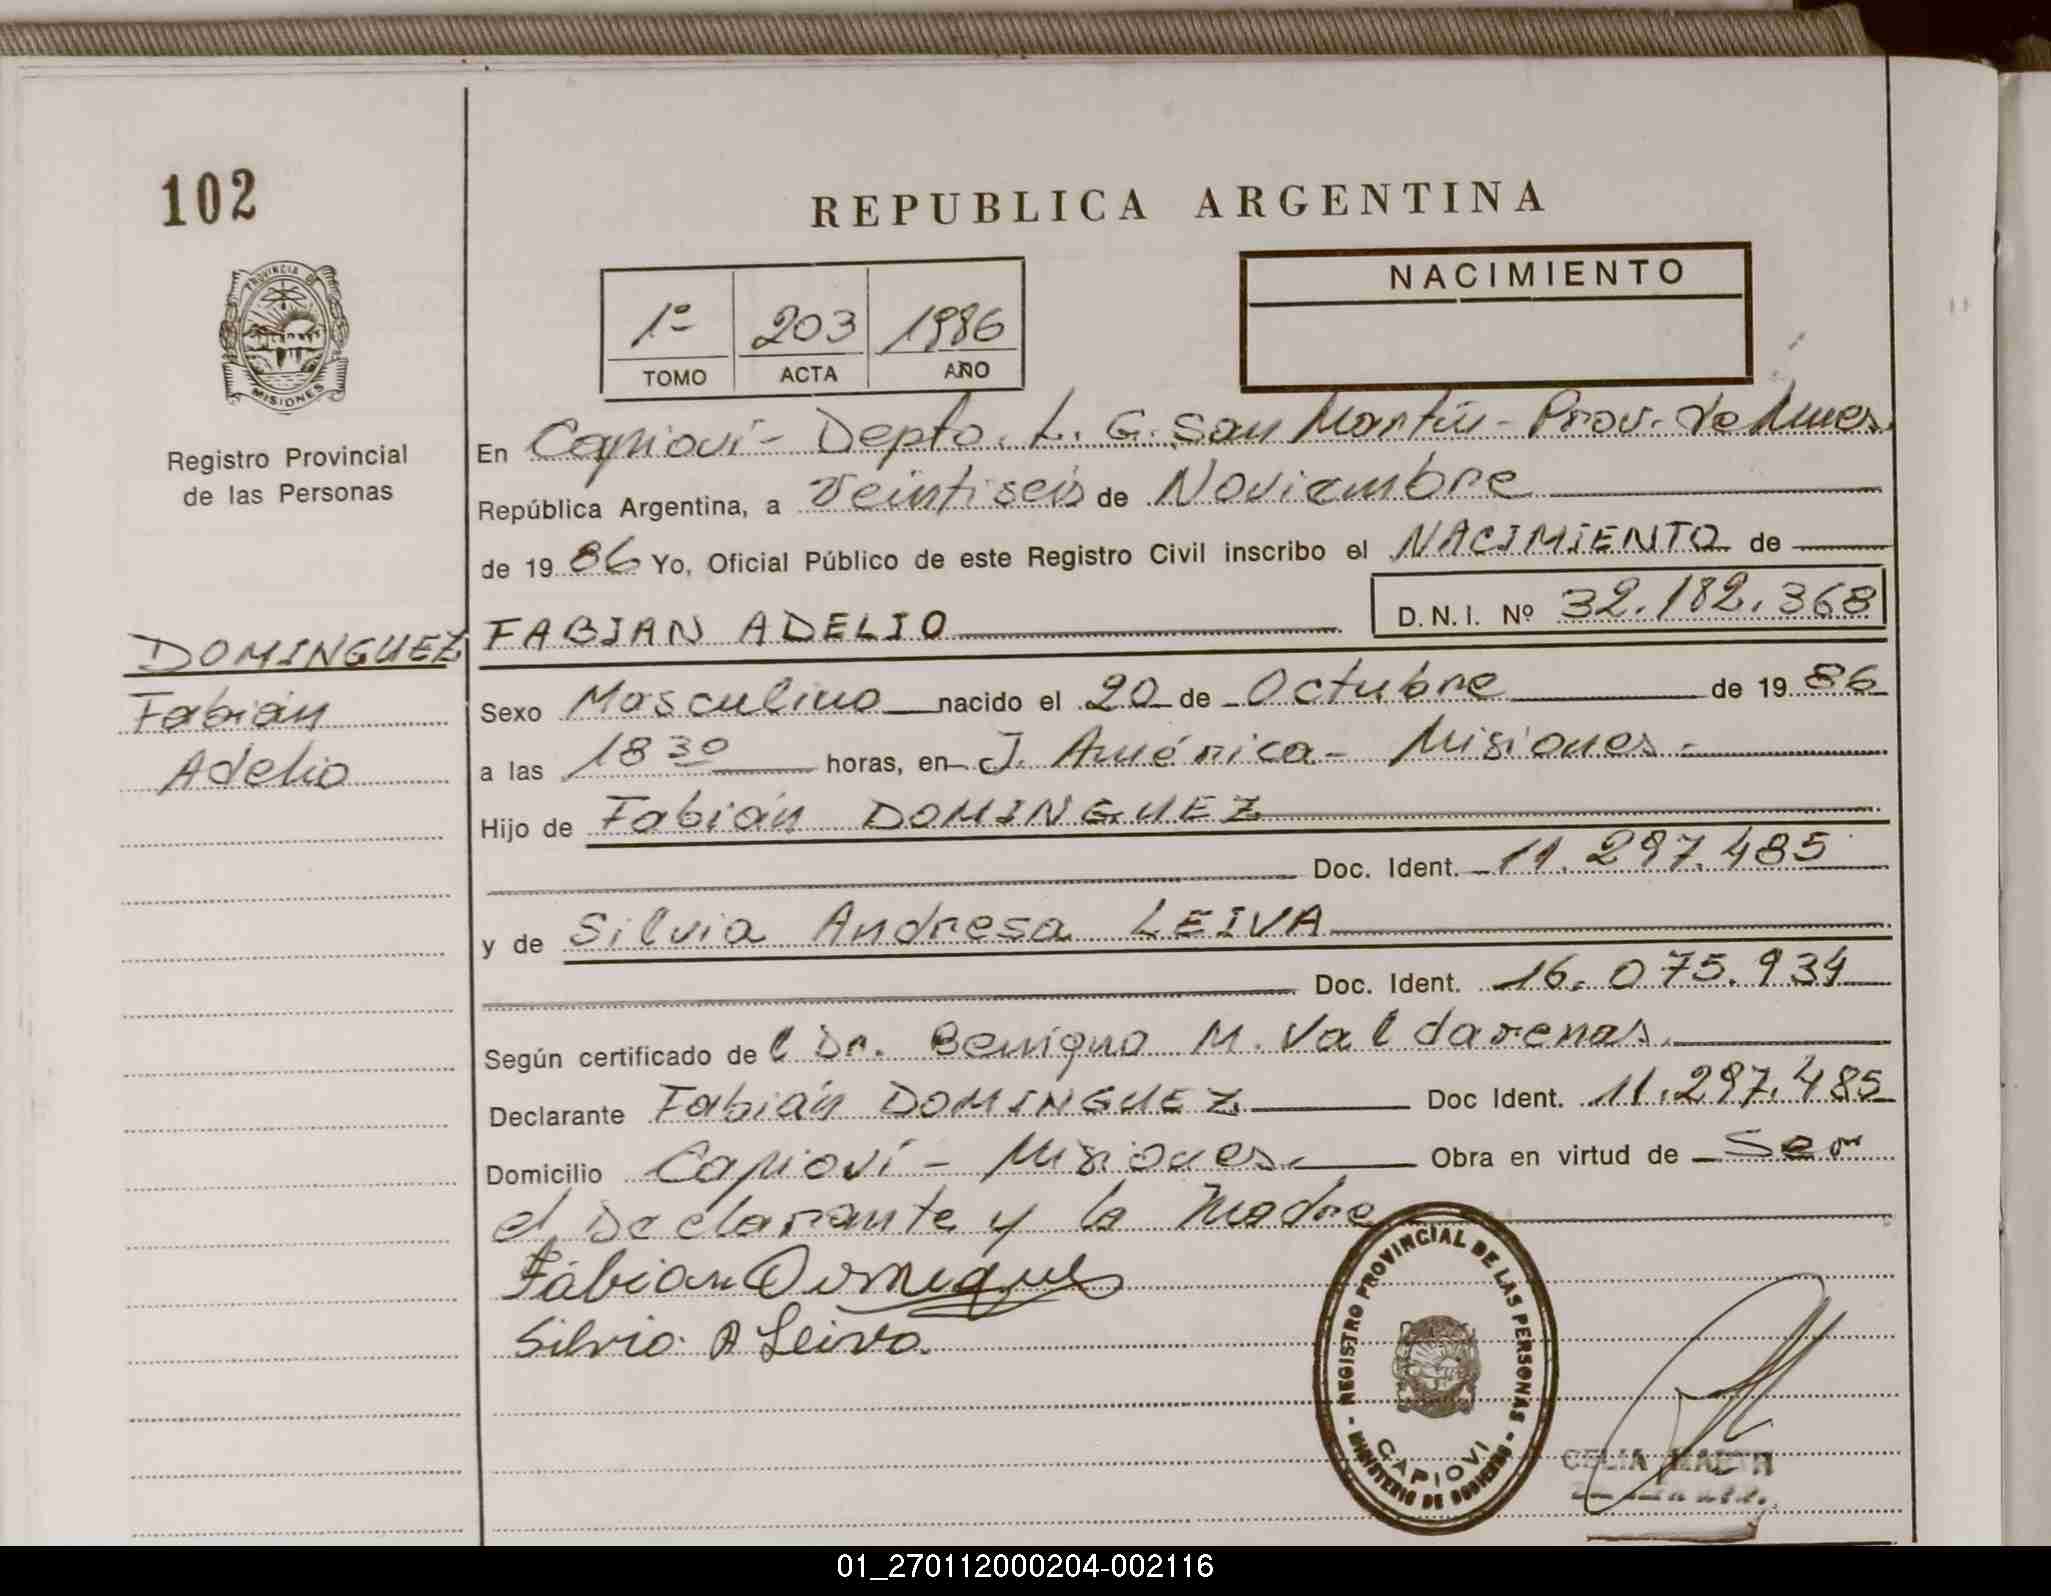 102
REPUBLICA ARGENTINA
PROVINCIA DE
MISIONES
NACIMIENTO
1º 203 1986
TOMO ACTA AÑO
Registro Provincial
de las Personas
En Capioví - Depto. L. G. San Martín - Prov. de Mnes.
República Argentina, a Veintiseis de Noviembre
de 19 86 Yo, Oficial Público de este Registro Civil inscribo el NACIMIENTO de
D.N.I. Nº 32.182.368
DOMINGUEZ
Fabián
Adelio
FABIAN ADELIO
Sexo Masculino nacido el 20 de Octubre de 19 86
a las 18 30 horas, en J. América - Misiones -
Hijo de Fabián DOMINGUEZ
Doc. Ident. 11.297.485
y de Silvia Andresa LEIVA
Doc. Ident. 16.075.934
Según certificado de l Dr. Benigno M. Valdarenas.
Declarante Fabián DOMINGUEZ Doc Ident. 11.297.485
Domicilio Capioví - Misiones. Obra en virtud de Ser
el Declarante y la Madre
Fabian
Silvia A Leiva.
REGISTRO PROVINCIAL DE LAS PERSONAS
- MINISTERIO DE GOBIERNO -
CAPIOVI
CELIA
01_270112000204-002116